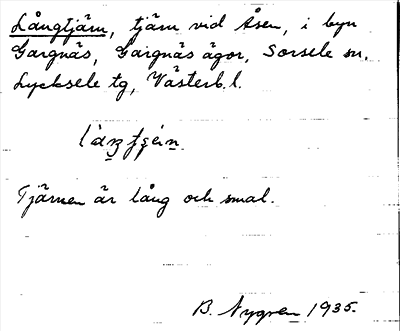 Långtjärn, tjärn vid Åsen, i byn
Gargnäs, Gargnäs ägor, Sorsele sn.
Lycksele tg, Västerb. l.
Tjärnen är lång och smal.
B. Nygren 1935.